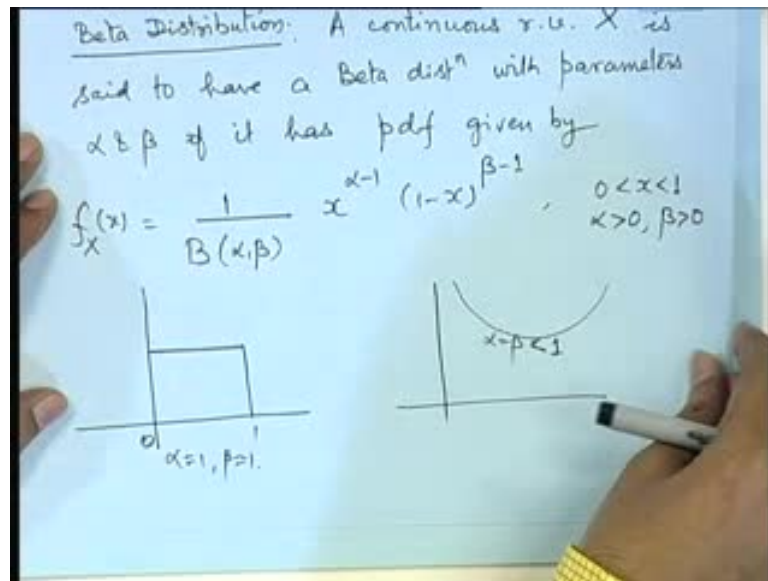 Beta Distribution. A continuous r.v. X is
said to have a Beta distⁿ with parameters
α & β if it has pdf given by
f_X(x) = 1 / B(α,β) x^{α-1} (1-x)^{β-1}, 0<x<1
α>0, β>0
α=β<1
0 1
α=1, β=1.